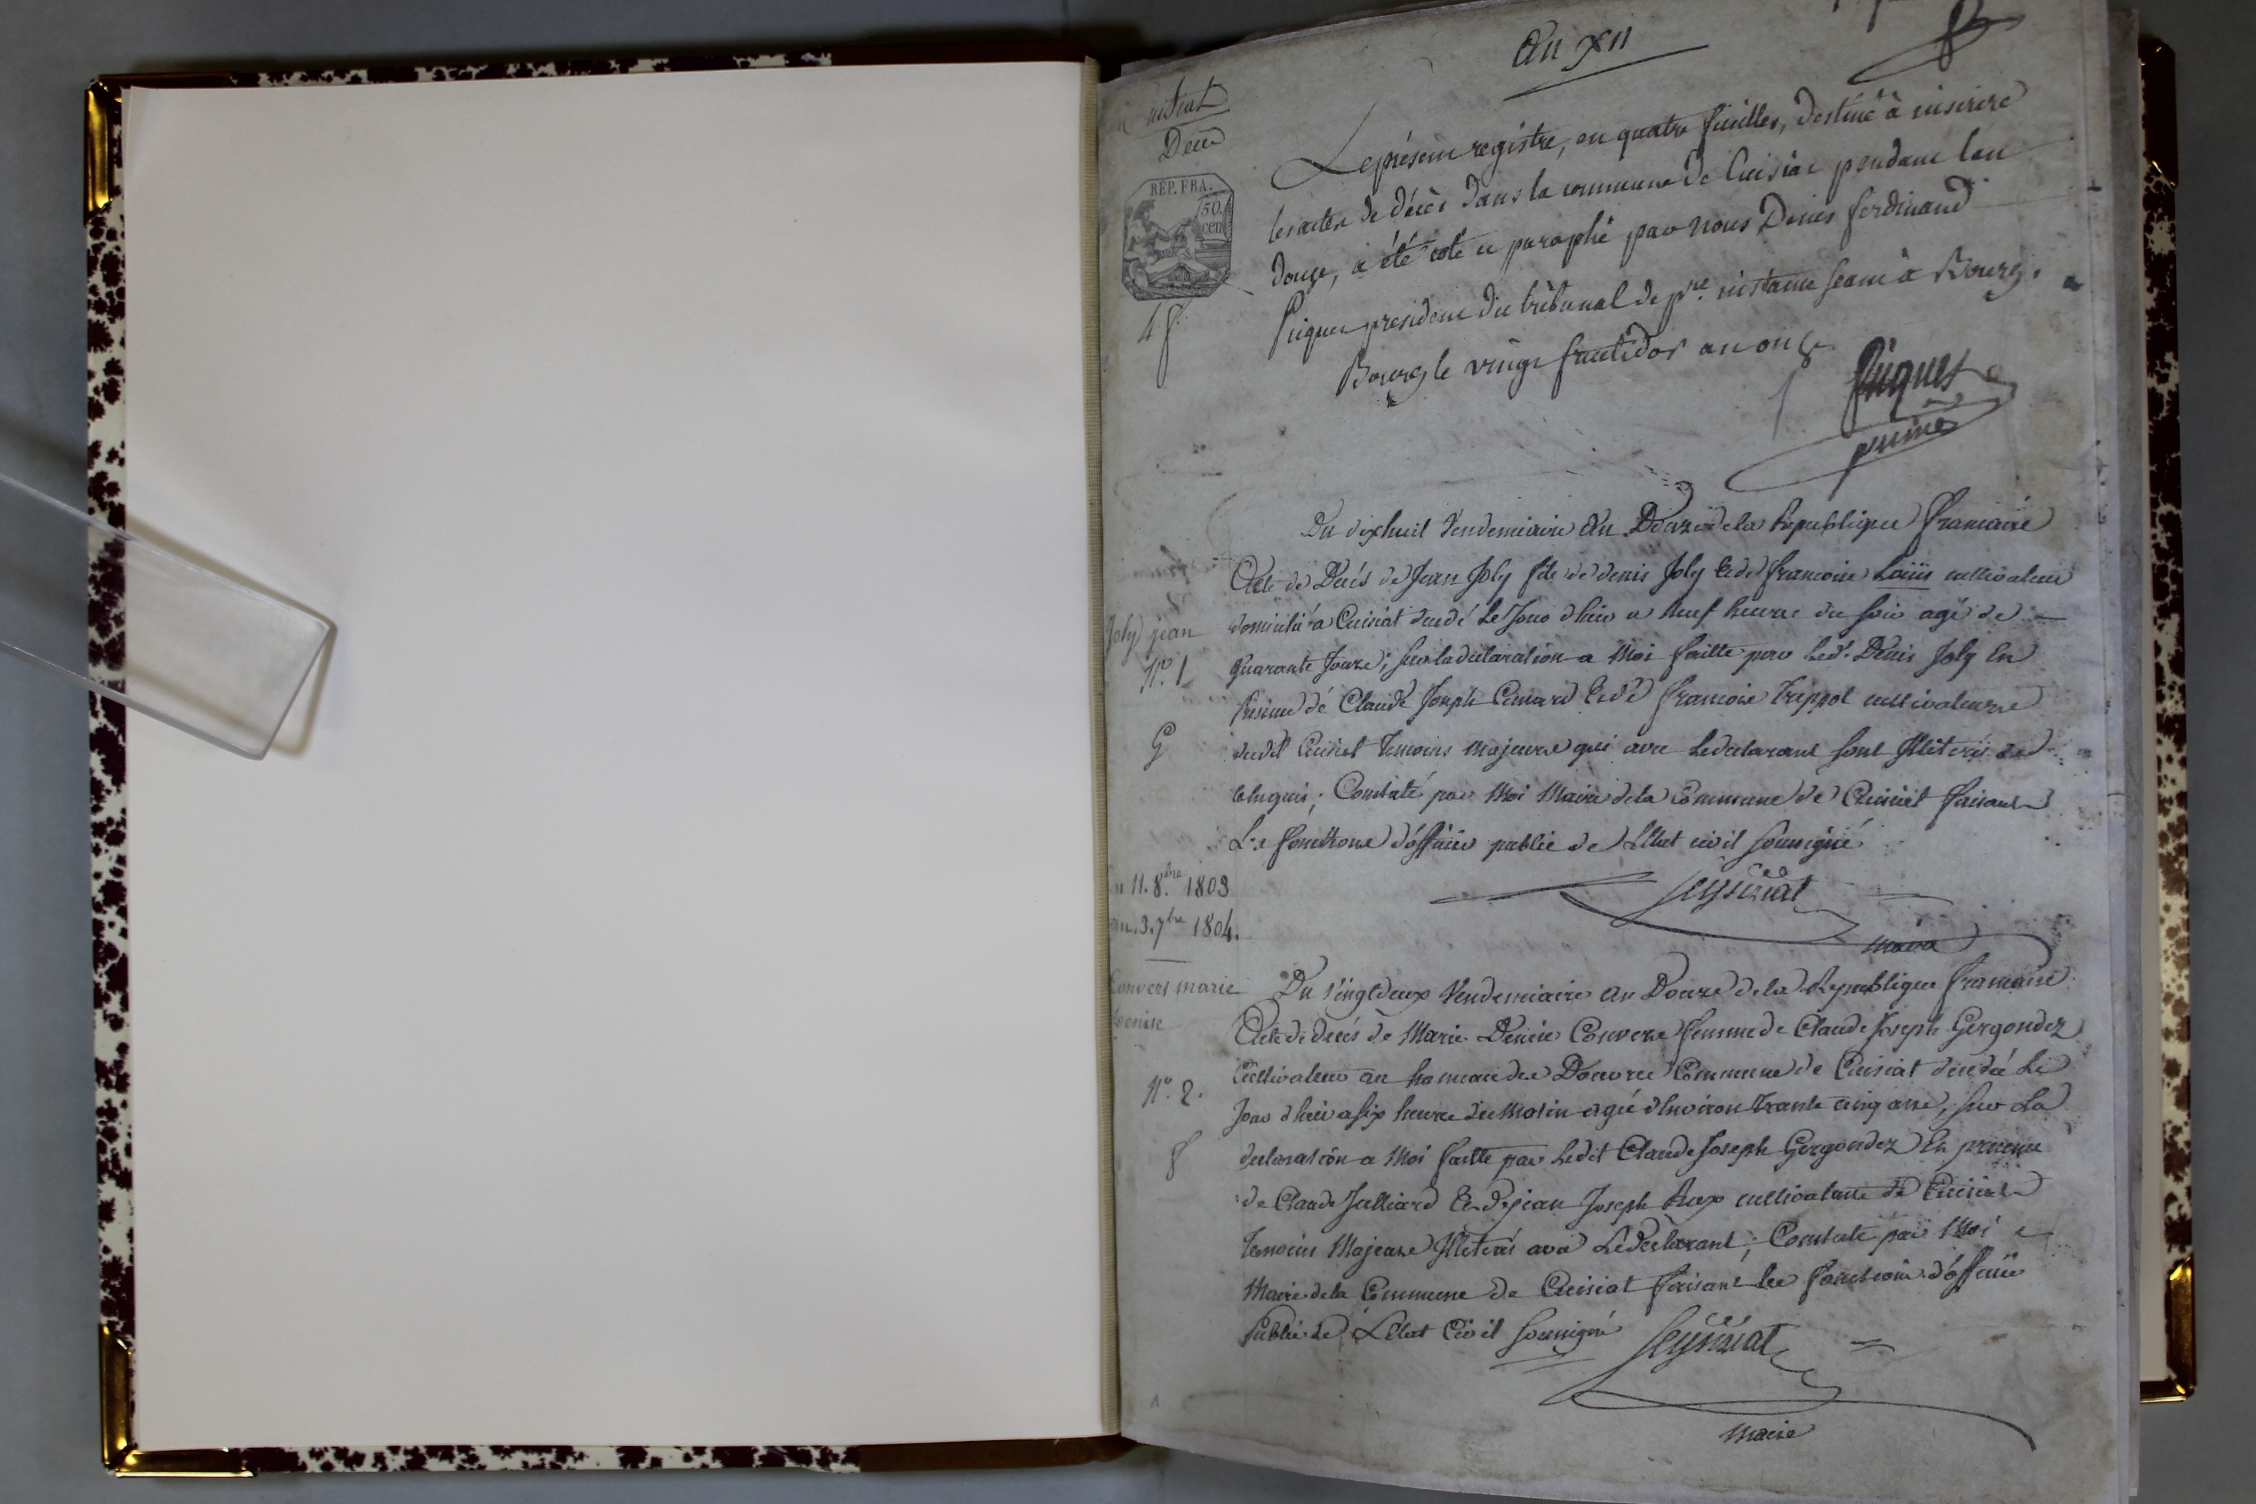 an XII
Cuisiat
Décès
REP. FRA.
50. cen
4 f.
Le présent registre, en quatre feuilles, destiné à inscrire
les actes de décès dans la commune de Cuisiat pendant l'an
douze, a été coté et paraphé par nous Denis ferdinand
Piquet president du tribunal de pre. instance séant à Bourg.
Bourg le vingt fructidor an onze
Piquet
Du dixhuit Vendemiaire an Douze de la Republique francaise
Joly jean
N° 1
G
Acte de Decés de Jean Joly fils de denis Joly et de francoise cultivateur
domicilié a Cuisiat decedé le Jour dhier a Neuf heures du soir agé de
quarante Jours; sur la declaration a Moi faitte par led. Denis Joly En
presence de Claude Joseph et de francois Trippot cultivateurs
dudit Cuisiat temoins majeurs qui avec le declarant sont Illiterés de
enquis; Constaté par Moi Maire de la Commune de Cuisiat faisant
Les fonctions d'officier public de L'Etat civil soussigné
maire
11. 8.bre 1803
3. 7bre 1804.
Convers marie
denise
N° 2.
f
Du Vingtdeux Vendemiaire an Douze de la Republique francaise
Acte de decés de Marie Denise Convers femme de Claude Joseph Gergondez
Cultivateur au hameau de Douvres Commune de Cuisiat decedé Le
Jour dhier a six heures du Matin agé dEnviron trante cinq ans, sur La
declaration a Moi faitte par Ledit Claude Joseph Gergondez En presence
de Claude Julliard et de jean Joseph Rux cultivateurs de Cuisiat
temoins Majeurs Illiterés avec Le declarant; Constaté par Moi
Maire de la Commune de Cuisiat faisant les fonctions d'officier
Public de L'Etat Civil soussigné
maire